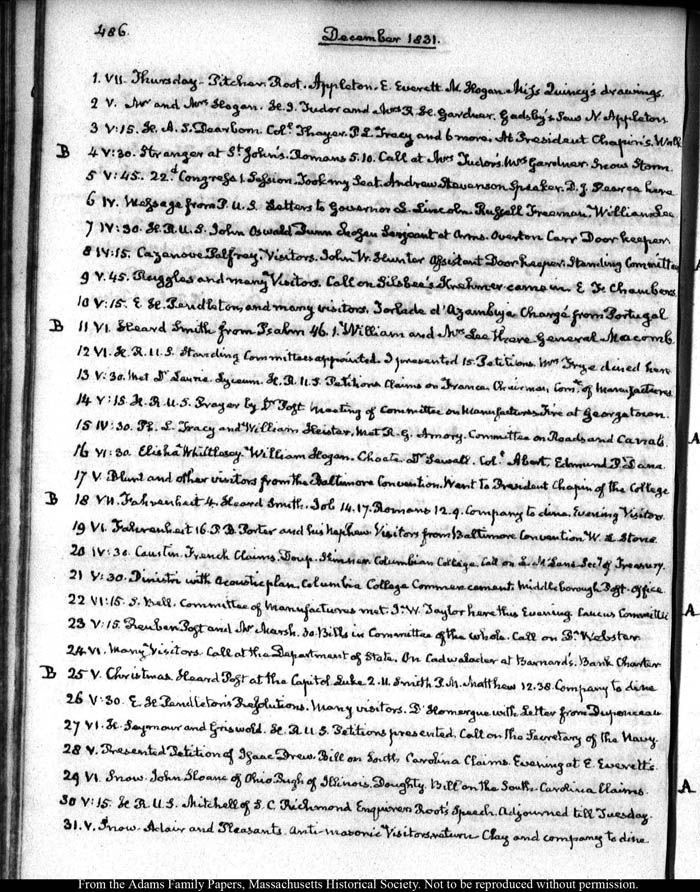 486.
December 1831.
1. VII. Thursday. Pitcher. Root. Appleton. E. Everett. M. Hogan. Miss Quincy's drawings.
2 V. Mr and Mrs Hogan. H. J. Tudor and Mrs R. H. Gardner. Gadsby's. Saw N. Appleton
3 V:15. H. A. S. Dearborn. Col.l Thayer. P. L. Tracy and 6 more. At President Chapin's. Walk
B 4 V:30. Stranger at St. John's. Romans 5.10. Call at Mrs Tudor's. Mrs Gardner. Snow Storm.
5 V:45. 22.d Congress 1. Session. Took my Seat. Andrew Stevenson Speaker. D. J. Pearce here
6 IV. Message from P. U. S. Letters to Governor L. Lincoln. Russell Freeman. William Lee
7 IV:30. H. R. U. S. John Oswald Dunn Serjeant at Arms. Overton Carr Door keeper.
8 IV:15. Cazenove. Palfrey. Visitors. John W. Hunter Assistant Door keeper. Standing Committees
9 V.45. Ruggles and many Visitors. Call on Silsbee's. Krehmer came in. E. F. Chambers
10 V:15. E. H. Pendleton, and many visitors. Torlade d'Azambuja Chargé from Portugal
B 11 VI. Heard Smith from Psalm 46.1. William and Mrs Lee there. General Macomb.
12 VI. H. R. U. S. Standing Committees appointed. I presented 15 Petitions. Mrs Frye dined here
13 V:30. Met Dr Laurie. Lyceum. H. R. U. S. Petitions Claims on France. Chairman, Com.ee of Manufactures
14 V:15 H. R. U. S. Prayer by Dr Post. Meeting of Committee on Manufactures. Fire at Georgetown.
15 IV:30. Ph. L. Tracy and William Heister. Met R. G. Amory. Committee on Roads and Canals.
16 VI:30. Elisha Whittlesey. William Slogan. Choate. Dr Sewall. Col.l Abert. Edmund P. Dana.
17 V. Blunt and other visitors from the Baltimore Convention. Went to President Chapin of the College
B 18 VII. Fahrenheit 4. Heard Smith. Job 14.17. Romans 12.9. Company to dine. Evening Visitors.
19 VI. Fahrenheit 16. P. B. Porter and his Nephew. Visitors from Baltimore Convention. W. L. Stone
20 IV:30. Caustin. French Claims. Columbian College. Call on L. McLane Sec.y of Treasury.
21 V:30. with Acoustic plan. Columbia College Commencement. Middleborough Post-Office
22 VI:15. S. Bell. Committee of Manufactures met. J. W. Taylor here this Evening. Caucus Committee
23 V:15. Reuben Post and Mr Marsh. 30 Bills in Committee of the whole. Call on D. Webster
24 VI. Many Visitors. Call at the Department of State. On Cadwalader at Barnard's. Bank Charter
B 25 V. Christmas. Heard Post at the Capitol Luke 2.11. Smith P.M. Matthew 12.38. Company to dine
26 V:30. E. H. Pendleton's Resolutions. Many visitors. D'Homergue with Letter from Duponceau
27 VI. H. Seymour and Griswold. H. R. U. S. Petitions presented. Call on the Secretary of the Navy.
28 V. Presented Petition of Isaac Drew. Bill on South Carolina Claims. Evening at E. Everett's.
29 VI. Snow. John Sloane of Ohio. Pugh of Illinois. Doughty. Bill on the South Carolina Claims.
30 V:15. H. R. U. S. Mitchell of S. C. Richmond Enquirer. Root's Speech. Adjourned till Tuesday.
31. V. Snow. Adair and Pleasants. Anti-masonic Visitors return. Clay and company to dine
A
A
A
From the Adams Family Papers, Massachusetts Historical Society. Not to be reproduced without permission.